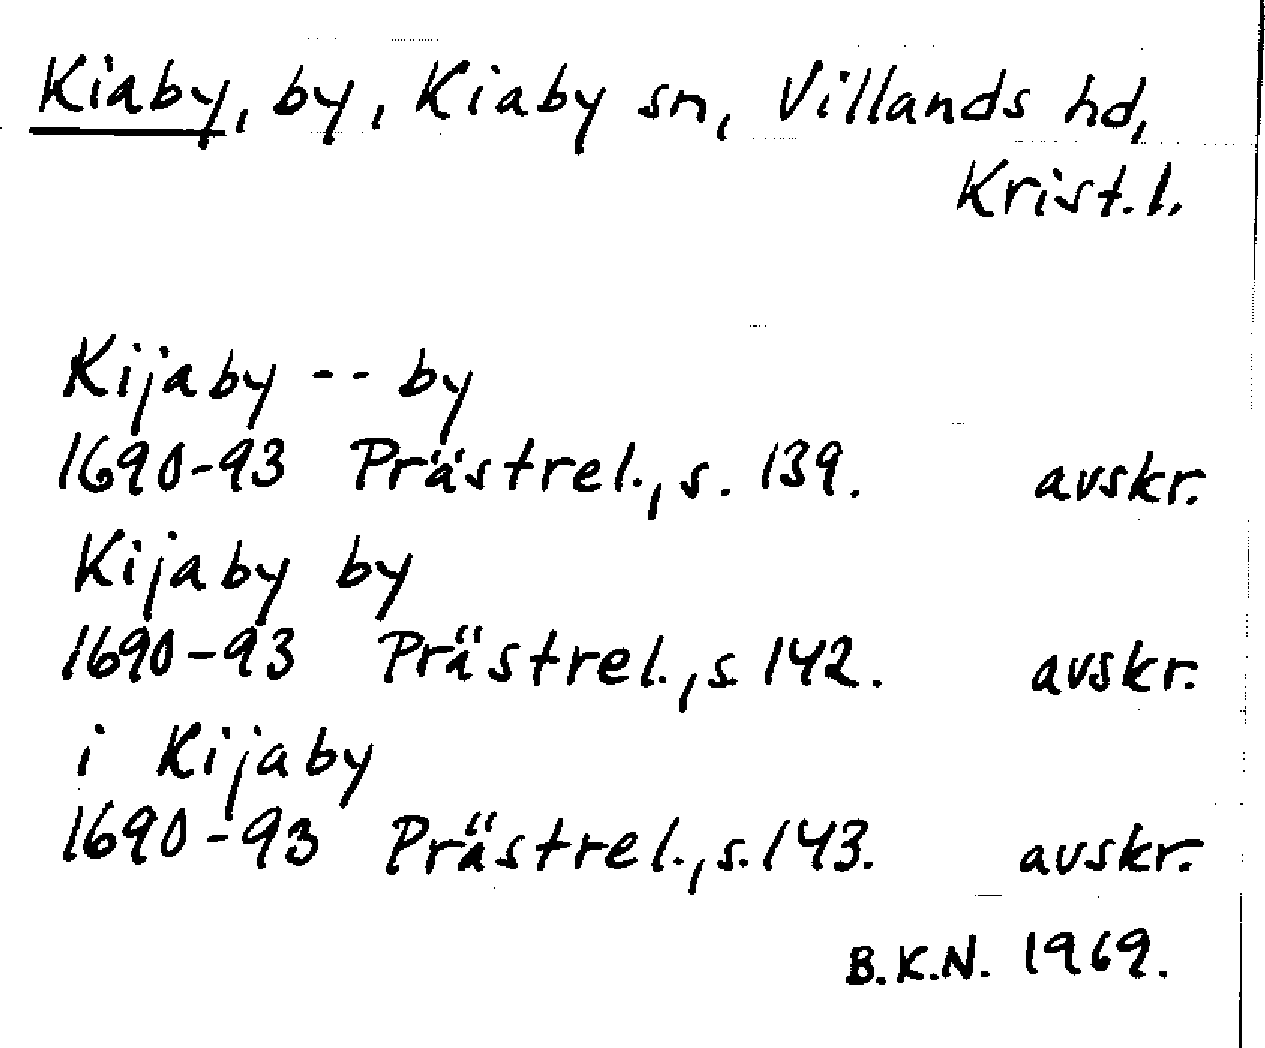 Kiaby, by, Kiaby sn, Villands hd,
Krist.l.
Kijaby -- by
1690-93 Prästrel., s. 139. avskr.
Kijaby by
1690-93 Prästrel., s. 142. avskr.
i Kijaby
1690-93 Prästrel., s. 143. avskr.
B.K.N. 1969.